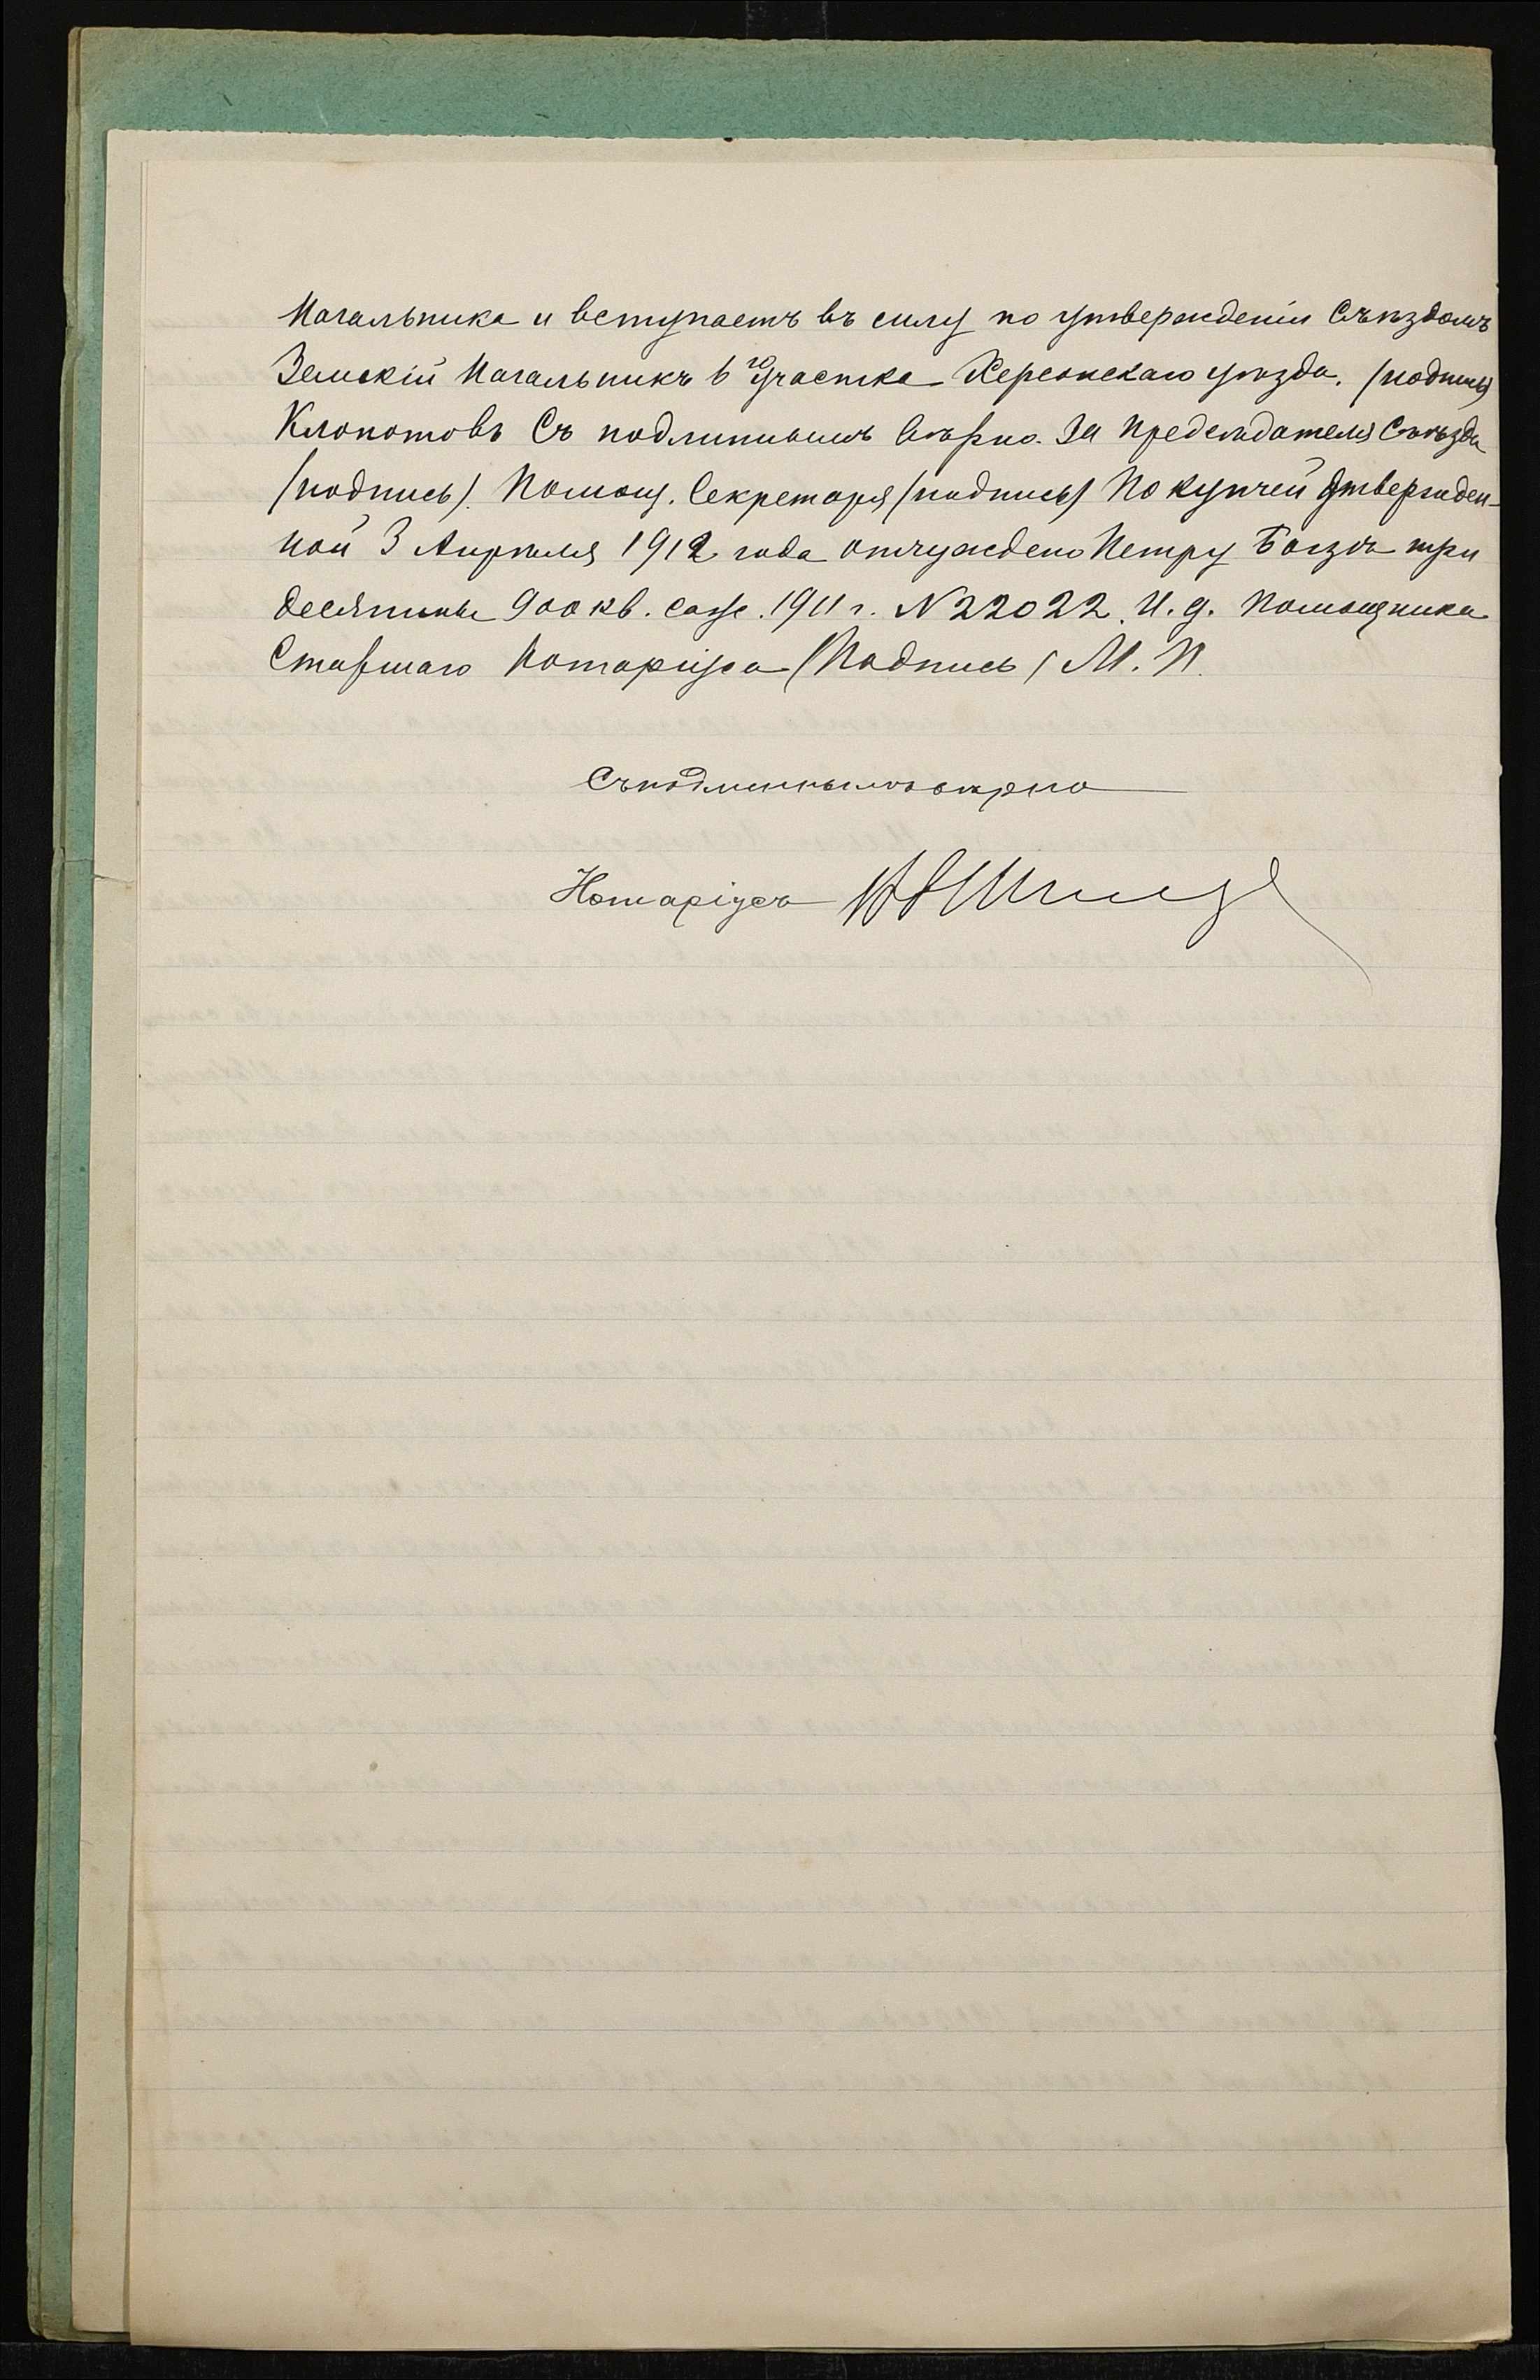 Начальника и вступаетъ въ силу по утвержденіи Съѣздомъ
Земскій Начальникъ 6го Участка Херсонскаго уѣзда. (подпись)
Клопотовъ Съ подлиннымъ вѣрно. За Предсѣдателя Съѣзда
(подпись). Помощ. Секретаря (подпись) По купчей утвержден-
ной 3 Апрѣля 1912 года отчуждено Петру три
десятины 900 кв. саж. 1911 г. N 22022. И. д. Помощника
Старшаго Нотаріуса (Подпись) М. П.
Съ подлиннымъ вѣрно
Нотаріусъ